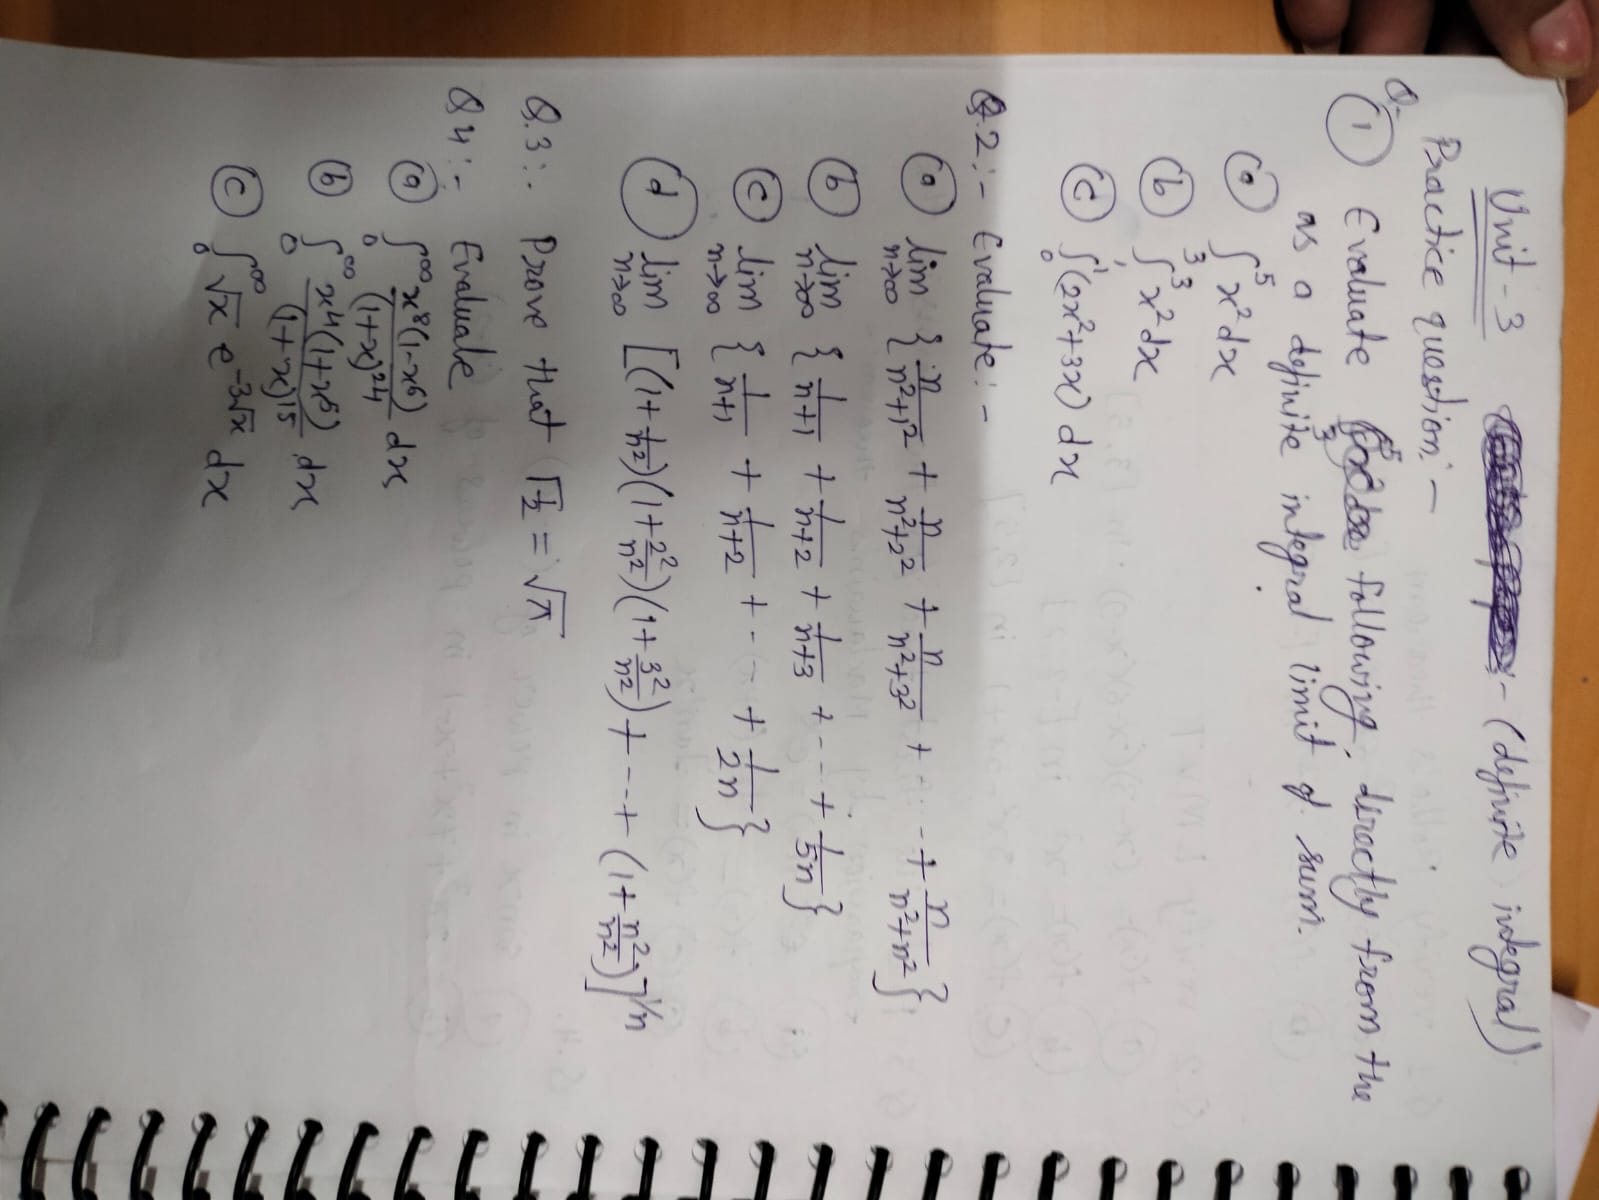 Unit - 3 :- (definite integral)
Practice question:-
Q-
① Evaluate following, directly from the
as a definite integral limit of sum.
ⓐ ∫₃⁵ x² dx
ⓑ ∫₁³ x² dx
ⓒ ∫₀¹ (2x²+3x) dx
Q.2:- Evaluate:-
ⓐ lim n→∞ { n/(n²+1²) + n/(n²+2²) + n/(n²+3²) + - - - + n/(n²+n²) }
ⓑ lim n→∞ { 1/(n+1) + 1/(n+2) + 1/(n+3) + - - - + 1/5n }
ⓒ lim n→∞ { 1/(n+1) + 1/(n+2) + - - - + 1/2n }
ⓓ lim n→∞ [(1+1/n²)(1+2²/n²)(1+3²/n²) + - - - + (1+n²/n²)]^1/n
Q.3:- Prove that Γ1/2 = √π
Q4:- Evaluate
ⓐ ∫₀^∞ x⁸(1-x⁶)/(1+x)²⁴ dx
ⓑ ∫₀^∞ x⁴(1+x⁵)/(1+x)¹⁵ dx
ⓒ ∫₀^∞ √x e^-3√x dx